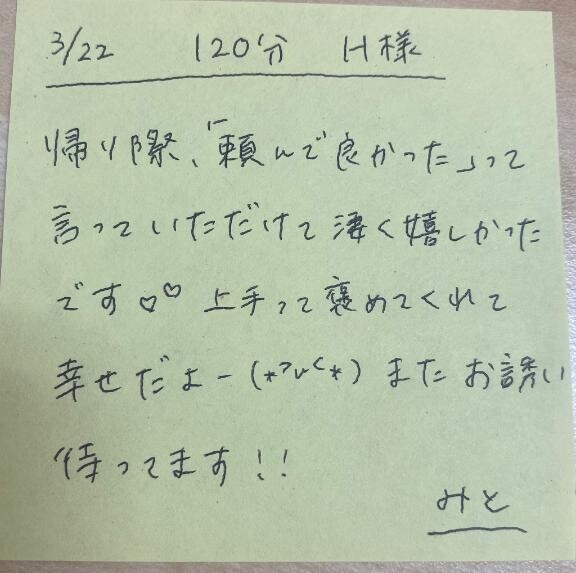 3/22 120分 H様
帰り際、「頼んで良かった」って
言っていただけて凄く嬉しかった
です♡♡ 上手って褒めてくれて
幸せだよー(*>ᴗ<*) またお誘い
待ってます!!
みと